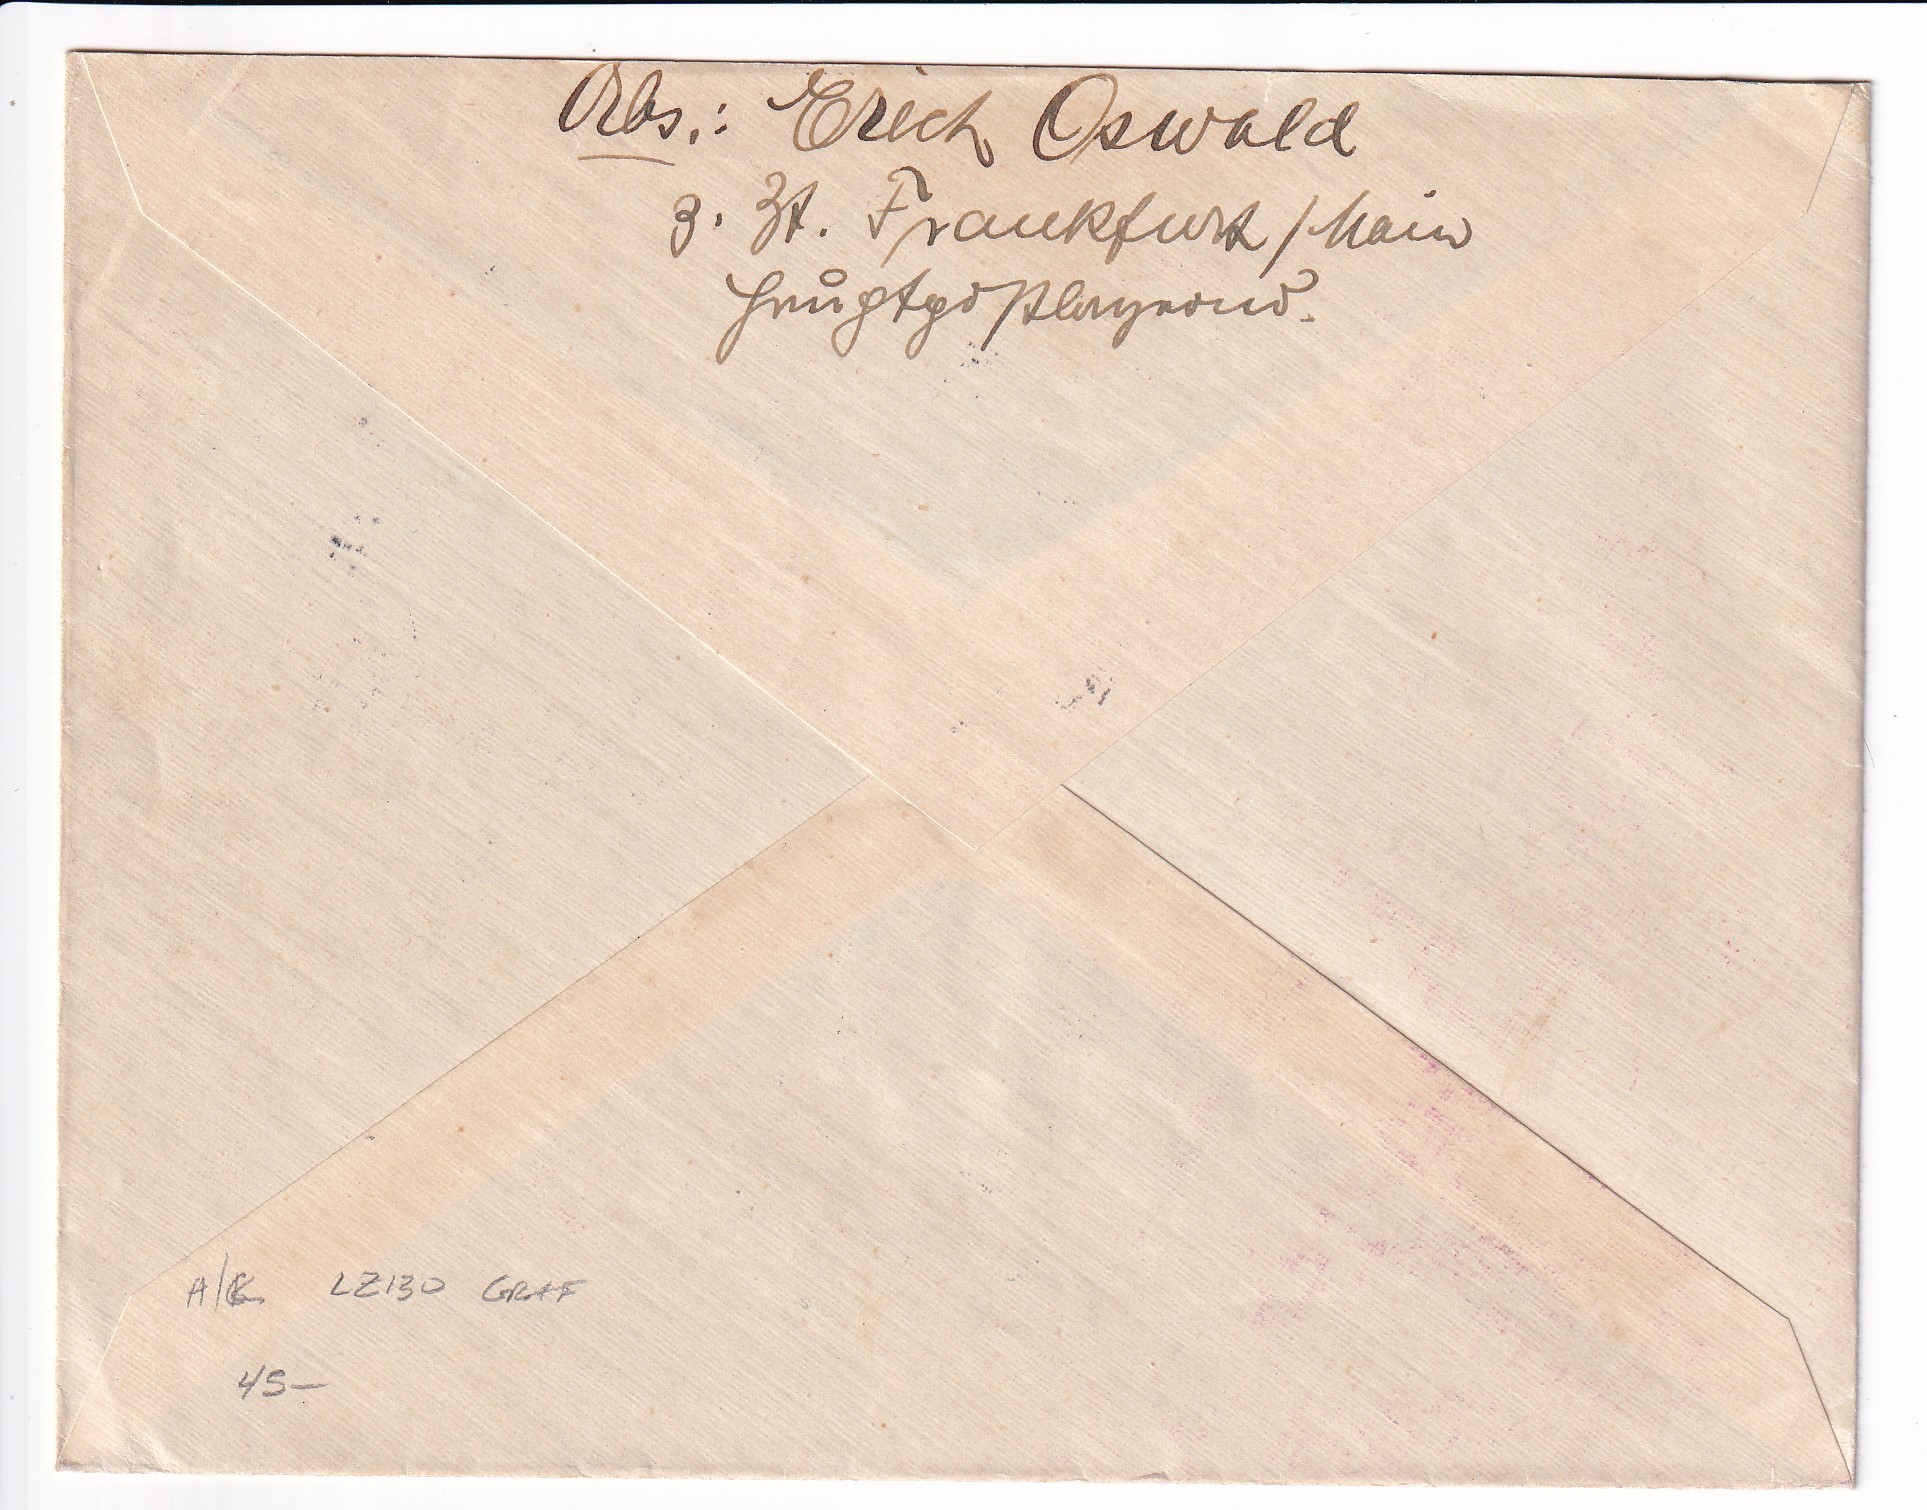 Abs.: Erich Oswald
z. Zt. Frankfurt/Main
Hauptpostlagernd.
A/C LZ130 GRAF
45-